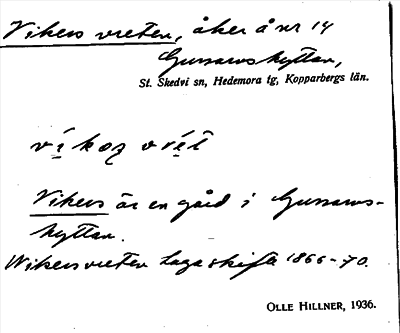 Vikers vreten, åker å nr 14
Gussarvshyttan,
St. Skedvi sn, Hedemora tg, Kopparbergs län.
Vikers är en gård i Gussarvs-
hyttan.
Wikersvreten Laga skifte 1866-70.
OLLE HILLNER, 1936.